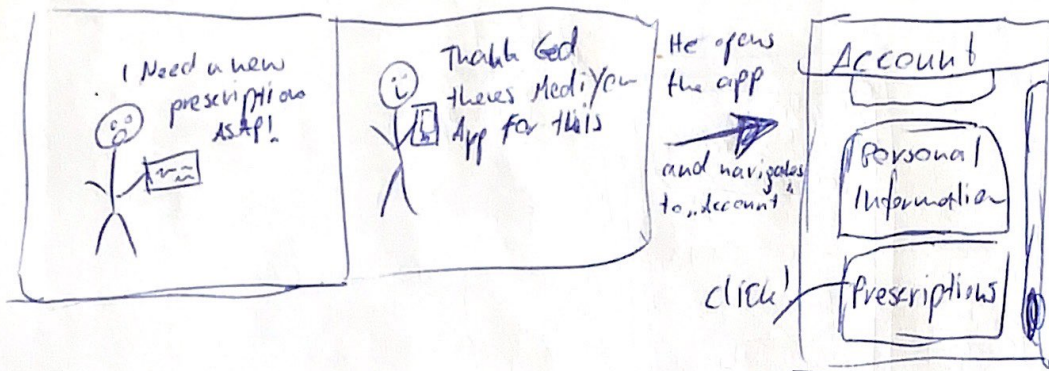 I Need a new
prescription
ASAP!
Thank God
theres MediYou
App for this
He opens
the app
and navigates
to „Account“
Account
Personal
Information
click!
Prescriptions